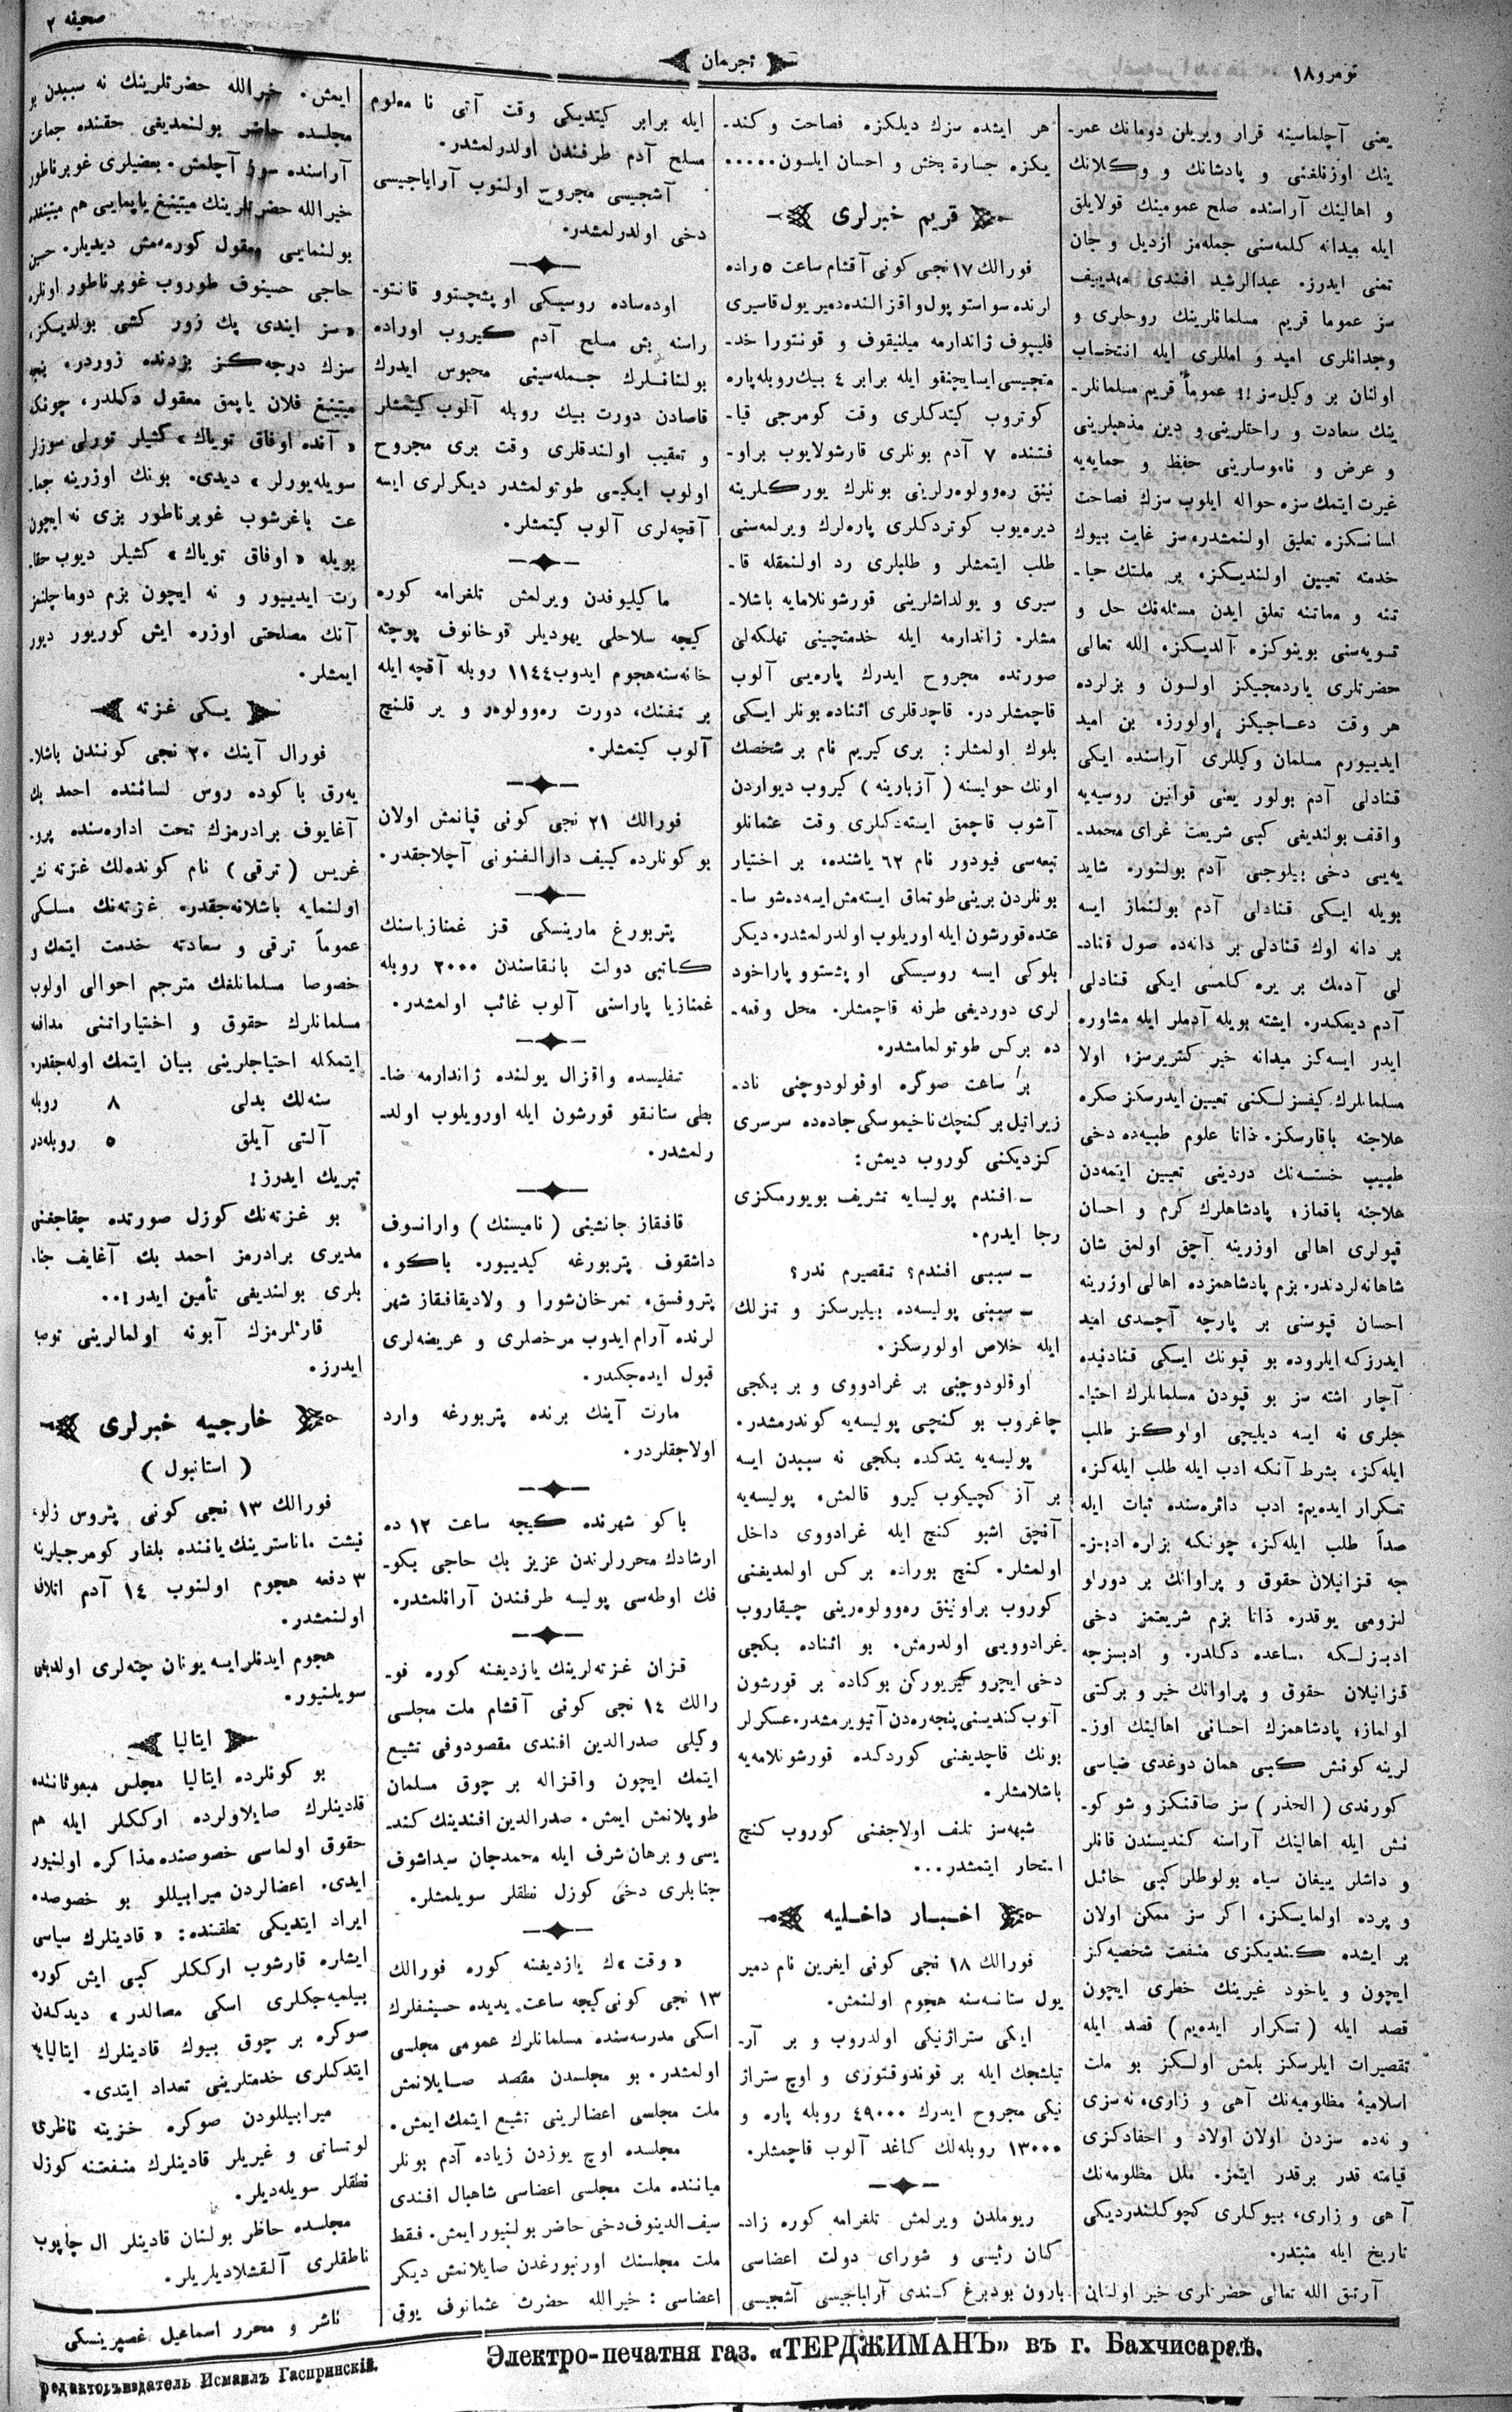 نومرو ١٨
ترجمان
صحيفه ٢
يعنى آچلماسينه قرار ويريلن دومانك عمر-
ينك اوزنلغنى و پادشانك و وكلانك
و اهالينك آراسنده صلح عمومينك قولايلق
ايله ميدانه كلمه‌سنى جمله‌مز ازديل و جان
تمنى ايدرز. عبدالرشيد افندى مهدييف
سز عموما قريم مسلمانلرينك روحلرى و
وجدانلرى اميد و امللرى ايله انتخاب
اولنان بر وكيل‌سز!! عموماً قريم مسلمانلر-
ينك سعادت و راحتلرينى و دين مذهبلرينى
و عرض و ناموسلرينى حفظ و حمايه‌يه
غيرت ايتمك سزه حواله ايلوب سزك فصاحت
لسانكزه تعليق اولنمشدر، سز غايت بيوك
خدمته تعيين اولنديكز، بر ملتك حيا-
تنه و مماتنه تعلق ايدن مسئله‌نك حل و
تسويه‌سنى بوينوكزه آلديكز، الله تعالى
حضرتلرى ياردمجيكز اولسون و بزلرده
هر وقت دعاجيكز اولورز، بن اميد
ايدييورم مسلمان وكيللرى آراسنده ايكى
قنادلى آدم بولور يعنى قوانين روسيه‌يه
واقف بولنديغى كبى شريعت غراى محمد-
يه‌يى دخى بيلوجى آدم بولنور، شايد
بويله ايكى قنادلى آدم بولنماز ايسه
بر دانه اوك قنادلى بر دانه‌ده صول قناد-
لى آدمك بر يره كلمسى ايكى قنادلى
آدم ديمكدر. ايشته بويله آدملر ايله مشاوره
ايدر ايسه‌كز ميدانه خير كتيريرسز؛ اولا
مسلمانلرك كيفسزلكنى تعيين ايدرسكز صكره
علاجنه باقارسكز. ذاتا علوم طبيه‌ده دخى
طبيب خسته‌نك دردينى تعيين ايتمه‌دن
علاجنه باقماز؛ پادشاهلرك كرم و احسان
قپولرى اهالى اوزرينه آچق اولمق شان
شاهانه‌لردندر. بزم پادشاهمزده اهالى اوزرينه
احسان قپوسنى بر پارچه آچدى اميد
ايدرزكه ايلروده بو قپونك ايكى قنادنيده
آچار اشته سز بو قپودن مسلمانلرك احتيا-
جلرى نه ايسه ديليجى اولوكز طلب
ايله‌كز، بشرط آنكه ادب ايله طلب ايله‌كز،
تكرار ايده‌يم: ادب دائره‌سنده ثبات ايله
صدا طلب ايله‌كز، چونكه بزلره ادبسز-
جه قزانيلان حقوق و پراوانك بر دورلو
لزومى يوقدر. ذاتا بزم شريعتمز دخى
ادبسزلكه مساعده دكلدر. و ادبسزجه
قزانيلان حقوق و پراوانك خير و بركتى
اولماز؛ پادشاهمزك احسانى اهالينك اوز-
لرينه كونش كبى همان دوغدى ضياسى
كورندى (الحذر) سز صاقنكز و شو كو-
نش ايله اهالينك آراسنه كنديسندن قانلر
و داشلر ييغان سياه بولوطلر كبى حائل
و پرده اولمايكز، اكر سز ممكن اولان
بر ايشده كنديكزى منفعت شخصيه‌كز
ايچون و ياخود غيرينك خطرى ايچون
قصد ايله (تكرار ايده‌يم) قصد ايله
تقصيرات ايلرسكز بلمش اولكز بو ملت
اسلاميهٔ مظلوميه‌نك آهى و زارى، نه سزى
و نه‌ده سزدن اولان اولاد و احفادكزى
قيامته قدر برقدر ايتمز. ملل مظلومه‌نك
آهى و زارى، بيوكلرى كچوكلنديرديكى
تاريخ ايله مثبتدر.
آرتق الله تعالى حضرتلرى خير اولنان
هر ايشده سزك ديلكزه فصاحت و كند-
يكزه جسارة بخش و احسان ايلسون.....
قريم خبرلرى
فورالك ١٧ نجى كونى آقشام ساعت ٥ راده
لرنده سواستوپول واقزالنده دمير يول قاسيرى
فليپوف ژاندارمه ميلنيقوف و قونتورا خد-
متجيسى ايسايچنقو ايله برابر ٤ بيك روبله پاره
كوتروب كيتدكلرى وقت كومرجى قيا-
فتنده ٧ آدم بونلرى قارشولايوب براو-
نينق ره‌وولوه‌رلرينى بونلرك يوركلرينه
ديره‌يوب كوتردكلرى پاره‌لرك ويرلمه‌سنى
طلب ايتمشلر و طلبلرى رد اولنمقله قا-
سيرى و يولداشلرينى قورشونلامايه باشلا-
مشلر. ژاندارمه ايله خدمتچينى تهلكه‌لى
صورتده مجروح ايدرك پاره‌يى آلوب
قاچمشلردر. قاچدقلرى اثناده بونلر ايكى
بلوك اولمشلر: برى كيريم نام بر شخصك
اونك حوليسنه (آزبارينه) كيروب ديواردن
آشوب قاچمق ايسته‌دكلرى وقت عثمانلو
تبعه‌سى فيودور نام ٦٢ ياشنده، بر اختيار
بونلردن برينى طوتماق ايسته‌مش ايسه‌ده شو سا-
عتده قورشون ايله اوريلوب اولدرلمشدر. ديكر
بلوكى ايسه روسيسكى اوپشستوو پاراخود
لرى دورديغى طرفه قاچمشلر. محل وقعه-
ده بركس طوتولمامشدر.
بر ساعت صوكره اوقولودوچنى ناد-
زيراتيل بر كنچك ناخيموسكى جاده‌ده سرسرى
كزديكنى كوروب ديمش:
ـ افندم پوليسايه تشريف بويورمكزى
رجا ايدرم.
ـ سببى افندم؟ تقصيرم ندر؟
ـ سببنى پوليسه‌ده بيليرسكز و تزلك
ايله خلاص اولورسكز.
اوقلودوچنى بر غرادووى و بر بكجى
چاغروب بو كنچى پوليسه‌يه كوندرمشدر.
پوليسه‌يه يتدكده بكجى نه سببدن ايسه
بر آز كچيكوب كيرو قالمش، پوليسه‌يه
آنجق اشبو كنچ ايله غرادووى داخل
اولمشلر. كنچ بوراده بركس اولمديغنى
كوروب براونينق ره‌وولوه‌رينى چيقاروب
غرادوويى اولدرمش. بو اثناده بكجى
دخى ايچرو كيريوركن بوكاده بر قورشون
آتوب كنديسنى پنجه‌ره‌دن آتيويرمشدر. عسكرلر
بونك قاچديغنى كوردكده قورشونلامه‌يه
باشلامشلر.
شبهه‌سز تلف اولاجغنى كوروب كنچ
انتحار ايتمشدر...
اخبار داخليه
فورالك ١٨ نجى كونى ايغرين نام دمير
يول ستانسه‌سنه هجوم اولنمش.
ايكى ستراژنيكى اولدروب و بر آر-
تيلشچك ايله بر قوندوقتورى و اوچ ستراژ
نيكى مجروح ايدرك ٤٩٠٠٠ روبله پاره و
١٣٠٠٠ روبله‌لك كاغد آلوب قاچمشلر.
ريوملدن ويرلمش تلغرامه كوره زاد-
كان رئيسى و شوراى دولت اعضاسى
بارون بودبرغ كندى آراباجيسى آشجيسى
ايله برابر كيتديكى وقت آتى نا معلوم
مسلح آدم طرفندن اولدرلمشدر.
آشجيسى مجروح اولنوب آراباجيسى
دخى اولدرلمشدر.
اوده‌ساده روسيسكى اوپشچستوو قانتو-
راسنه بش مسلح آدم كيروب اوراده
بولنانلرك جمله‌سينى محبوس ايدرك
قاصادن دورت بيك روبله آلوب كيتمشلر
و تعقيب اولندقلرى وقت برى مجروح
اولوب ايكيسى طوتولمشدر ديكرلرى ايسه
آقچه‌لرى آلوب كيتمشلر.
ماكيليوفدن ويرلمش تلغرامه كوره
كيجه سلاحلى يهوديلر قوخانوف پوچته
خانه‌سنه هجوم ايدوب ١١٤٤ روبله آقچه ايله
بر تفنك، دورت ره‌وولوه‌ر و بر قلنچ
آلوب كيتمشلر.
فورالك ٢١ نجى كونى قپانمش اولان
بو كونلرده كييف دارالفنونى آچلاجقدر.
پتربورغ مارينسكى قز غمنازياسنك
كاتبى دولت بانقاسندن ٢٠٠٠ روبله
غمنازيا پاراسنى آلوب غائب اولمشدر.
تفليسده واقزال يولنده ژاندارمه ضا-
بطى ستانقو قورشون ايله اورويلوب اولد-
رلمشدر.
قافقاز جانشينى (ناميسنك) وارانسوف
داشقوف پتربورغه كيدييور. باكو،
پتروفسق، تمرخان‌شورا و ولاديقافقاز شهر
لرنده آرام ايدوب مرخصلرى و عريضه‌لرى
قبول ايده‌جكدر.
مارت آينك برنده پتربورغه وارد
اولاجقلردر.
باكو شهرنده كيجه ساعت ١٢ ده
ارشادك محررلرندن عزيز بك حاجى بكو-
فك اوطه‌سى پوليسه طرفندن آرانلمشدر.
قزان غزته‌لرينك يازديغنه كوره فو-
رالك ١٤ نجى كونى آقشام ملت مجلسى
وكيلى صدرالدين افندى مقصودوفى تشيع
ايتمك ايچون واقزاله بر چوق مسلمان
طوپلانمش ايمش. صدرالدين افندينك كند-
يسى و برهان شرف ايله محمدجان سيداشوف
جنابلرى دخى كوزل نطقلر سويلمشلر.
«وقت» ك يازديغنه كوره فورالك
١٣ نجى كونى كيجه ساعت يديده حسينفلرك
اسكى مدرسه‌سنده مسلمانلرك عمومى مجلسى
اولمشدر. بو مجلسدن مقصد صايلانمش
ملت مجلسى اعضالرينى تشيع ايتمك ايمش.
مجلسده اوچ يوزدن زياده آدم بونلر
مياننده ملت مجلسى اعضاسى شاهبال افندى
سيف الدينوف دخى حاضر بولنيور ايمش. فقط
ملت مجلسنك اورنبورغدن صايلانمش ديكر
اعضاسى: خيرالله حضرت عثمانوف يوق
ايمش. خيرالله حضرتلرينك نه سببدن بو
مجلسده حاضر بولنمديغى حقنده جماعت
آراسنده سوز آچلمش. بعضيلرى غوبرناطور
خيرالله حضرتلرينك ميتينغ ياپمايى هم ميتينغده
بولنمايى معقول كورمه‌مش ديديلر. حسين
حاجى حسينوف طوروب غوبرناطور اونلره
«سز ايندى پك زور كشى بولديكز،
سزك درجه‌كز بزدنده زوردر، پچه
ميتينغ فلان ياپمق معقول دكلدر، چونكه
«آنده اوفاق توياك» كشيلر تورلى سوزلر
سويله‌يورلر» ديدى. بونك اوزرينه جما-
عت باغرشوب غوبرناطور بزى نه ايچون
بويله «اوفاق توياك» كشيلر ديوب حقا-
رت ايدييور و نه ايچون بزم دوماچلنمز
آنك مصلحتى اوزره ايش كوريور ديور
ايمشلر.
يكى غزته
فورال آينك ٢٠ نجى كونندن باشلا-
يه‌رق باكوده روس لساننده احمد بك
آغايوف برادرمزك تحت اداره‌سنده پرو-
غريس (ترقى) نام كونده‌لك غزته نشر
اولنمايه باشلانه‌جقدر. غزته‌نك مسلكى
عموماً ترقى و سعادته خدمت ايتمك و
خصوصا مسلمانلغك مترجم احوالى اولوب
مسلمانلرك حقوق و اختياراتنى مدافعه
ايتمكله احتياجلرينى بيان ايتمك اوله‌جقدر.
سنه‌لك بدلى ٨ روبله
آلتى آيلق ٥ روبله‌در
تبريك ايدرز!
بو غزته‌نك كوزل صورتده چقاجغنى
مديرى برادرمز احمد بك آغايف جنا-
بلرى بولنديغى تأمين ايدر!..
قارئلرمزك آبونه اولمالرينى توصيه
ايدرز.
خارجيه خبرلرى
(استانبول)
فورالك ١٣ نجى كونى پتروس زلو،
فيشت ماناسترينك ياننده بلغار كومرجيلرينه
٣ دفعه هجوم اولنوب ١٤ آدم اتلاف
اولنمشدر.
هجوم ايدنلر ايسه يونان چته‌لرى اولديغى
سويلنيور.
ايتاليا
بو كونلرده ايتاليا مجلس مبعوثاننده
قادينلرك صايلاولرده ارككلر ايله هم
حقوق اولماسى خصوصنده مذاكره اولنيور
ايدى. اعضالردن ميرابيللو بو خصوصده
ايراد ايتديكى نطقنده: «قادينلرك سياسى
ايشلره قارشوب ارككلر كبى ايش كوره
بيلميه‌جكلرى اسكى مصالدر» ديدكدن
صوكره بر چوق بيوك قادينلرك ايتاليايه
ايتدكلرى خدمتلرينى تعداد ايتدى.
ميرابيللودن صوكره خزينه ناظرى
لوتساتى و غيريلر قادينلرك منفعتنه كوزل
نطقلر سويله‌ديلر.
مجلسده حاظر بولنان قادينلر ال چاپوب
ناطقلرى آلقشلاديلريلر.
ناشر و محرر اسماعيل غصپرينسكى
редакторъ-издатель Исмаилъ Гаспринскій.
Электро-печатня газ. «ТЕРДЖИМАНЪ» въ г. Бахчисараѣ.